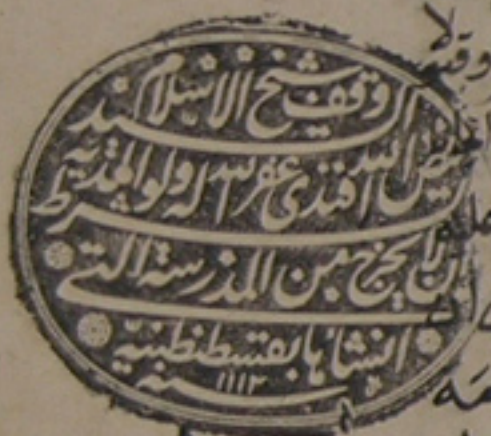 وقف شيخ الاسلام السيد
فيض الله افندى غفر الله له ولوالديه بشرط
ان لا يخرج من المدرسة التي
انشاها بقسطنطنية
سنة ١١١٣